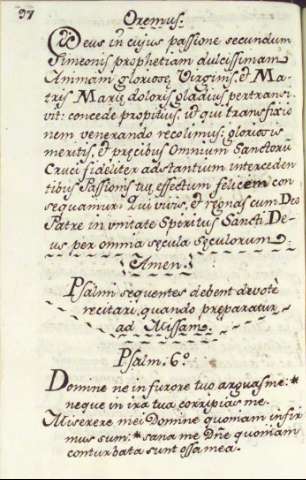 37
Oremus.
Deus in cujus passione secundum
Simeonis prophetiam dulcissimam
Animam gloriosæ Virginis, et Ma-
tris Mariæ doloris gladius pertransi-
vit: concede propitius, ut qui transfixio
nem venerando recolimus; gloriosis
meritis, et precibus Omnium Sanctorũ
Cruci fideliter adstantium interceden
tibus Passionis tuæ effectum felicem con
sequamur: Qui vivis, et regnas cum Deo
Patre in unitate Spiritus Sancti De-
us per omnia sæcula sæculorum.
Amen.
Psalmi sequentes debent devotè
recitari, quando præparatur
ad Missam.
Psalm. 6.º
Domine ne in furore tuo arguas me: *
neque in ira tua corripias me.
Miserere mei Domine quoniam infir
mus sum: * sana me Dñe quoniam
conturbata sunt ossa mea.